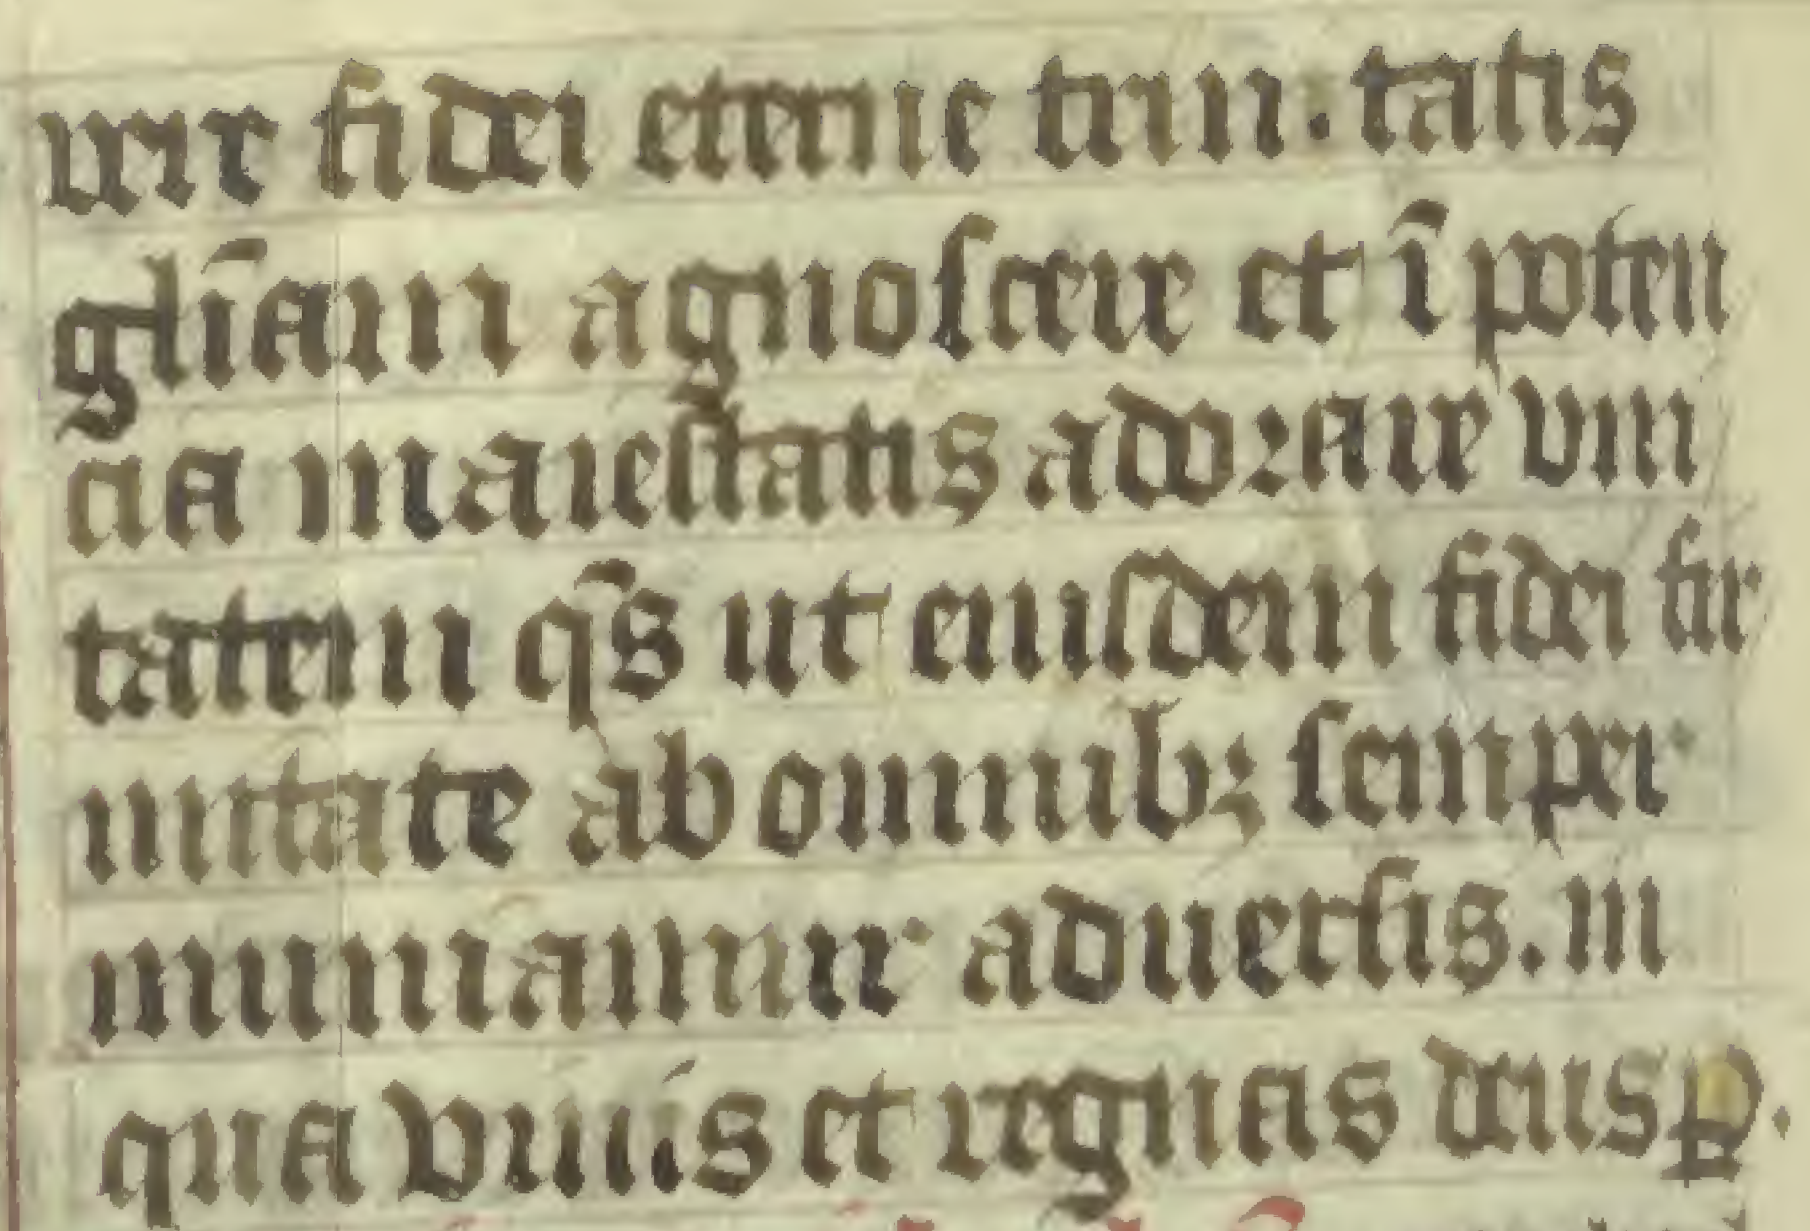 uere fidei eterne trini.tatis
gl̄iam agnoſcere et ī poten
cia maieſtatis adorare vni
tatem q̄s ut eiuſdem fidei fir
mitate ab omnibꝫ ſemper
muniamur aduerſis. in
qua viuis et regnas deus p.